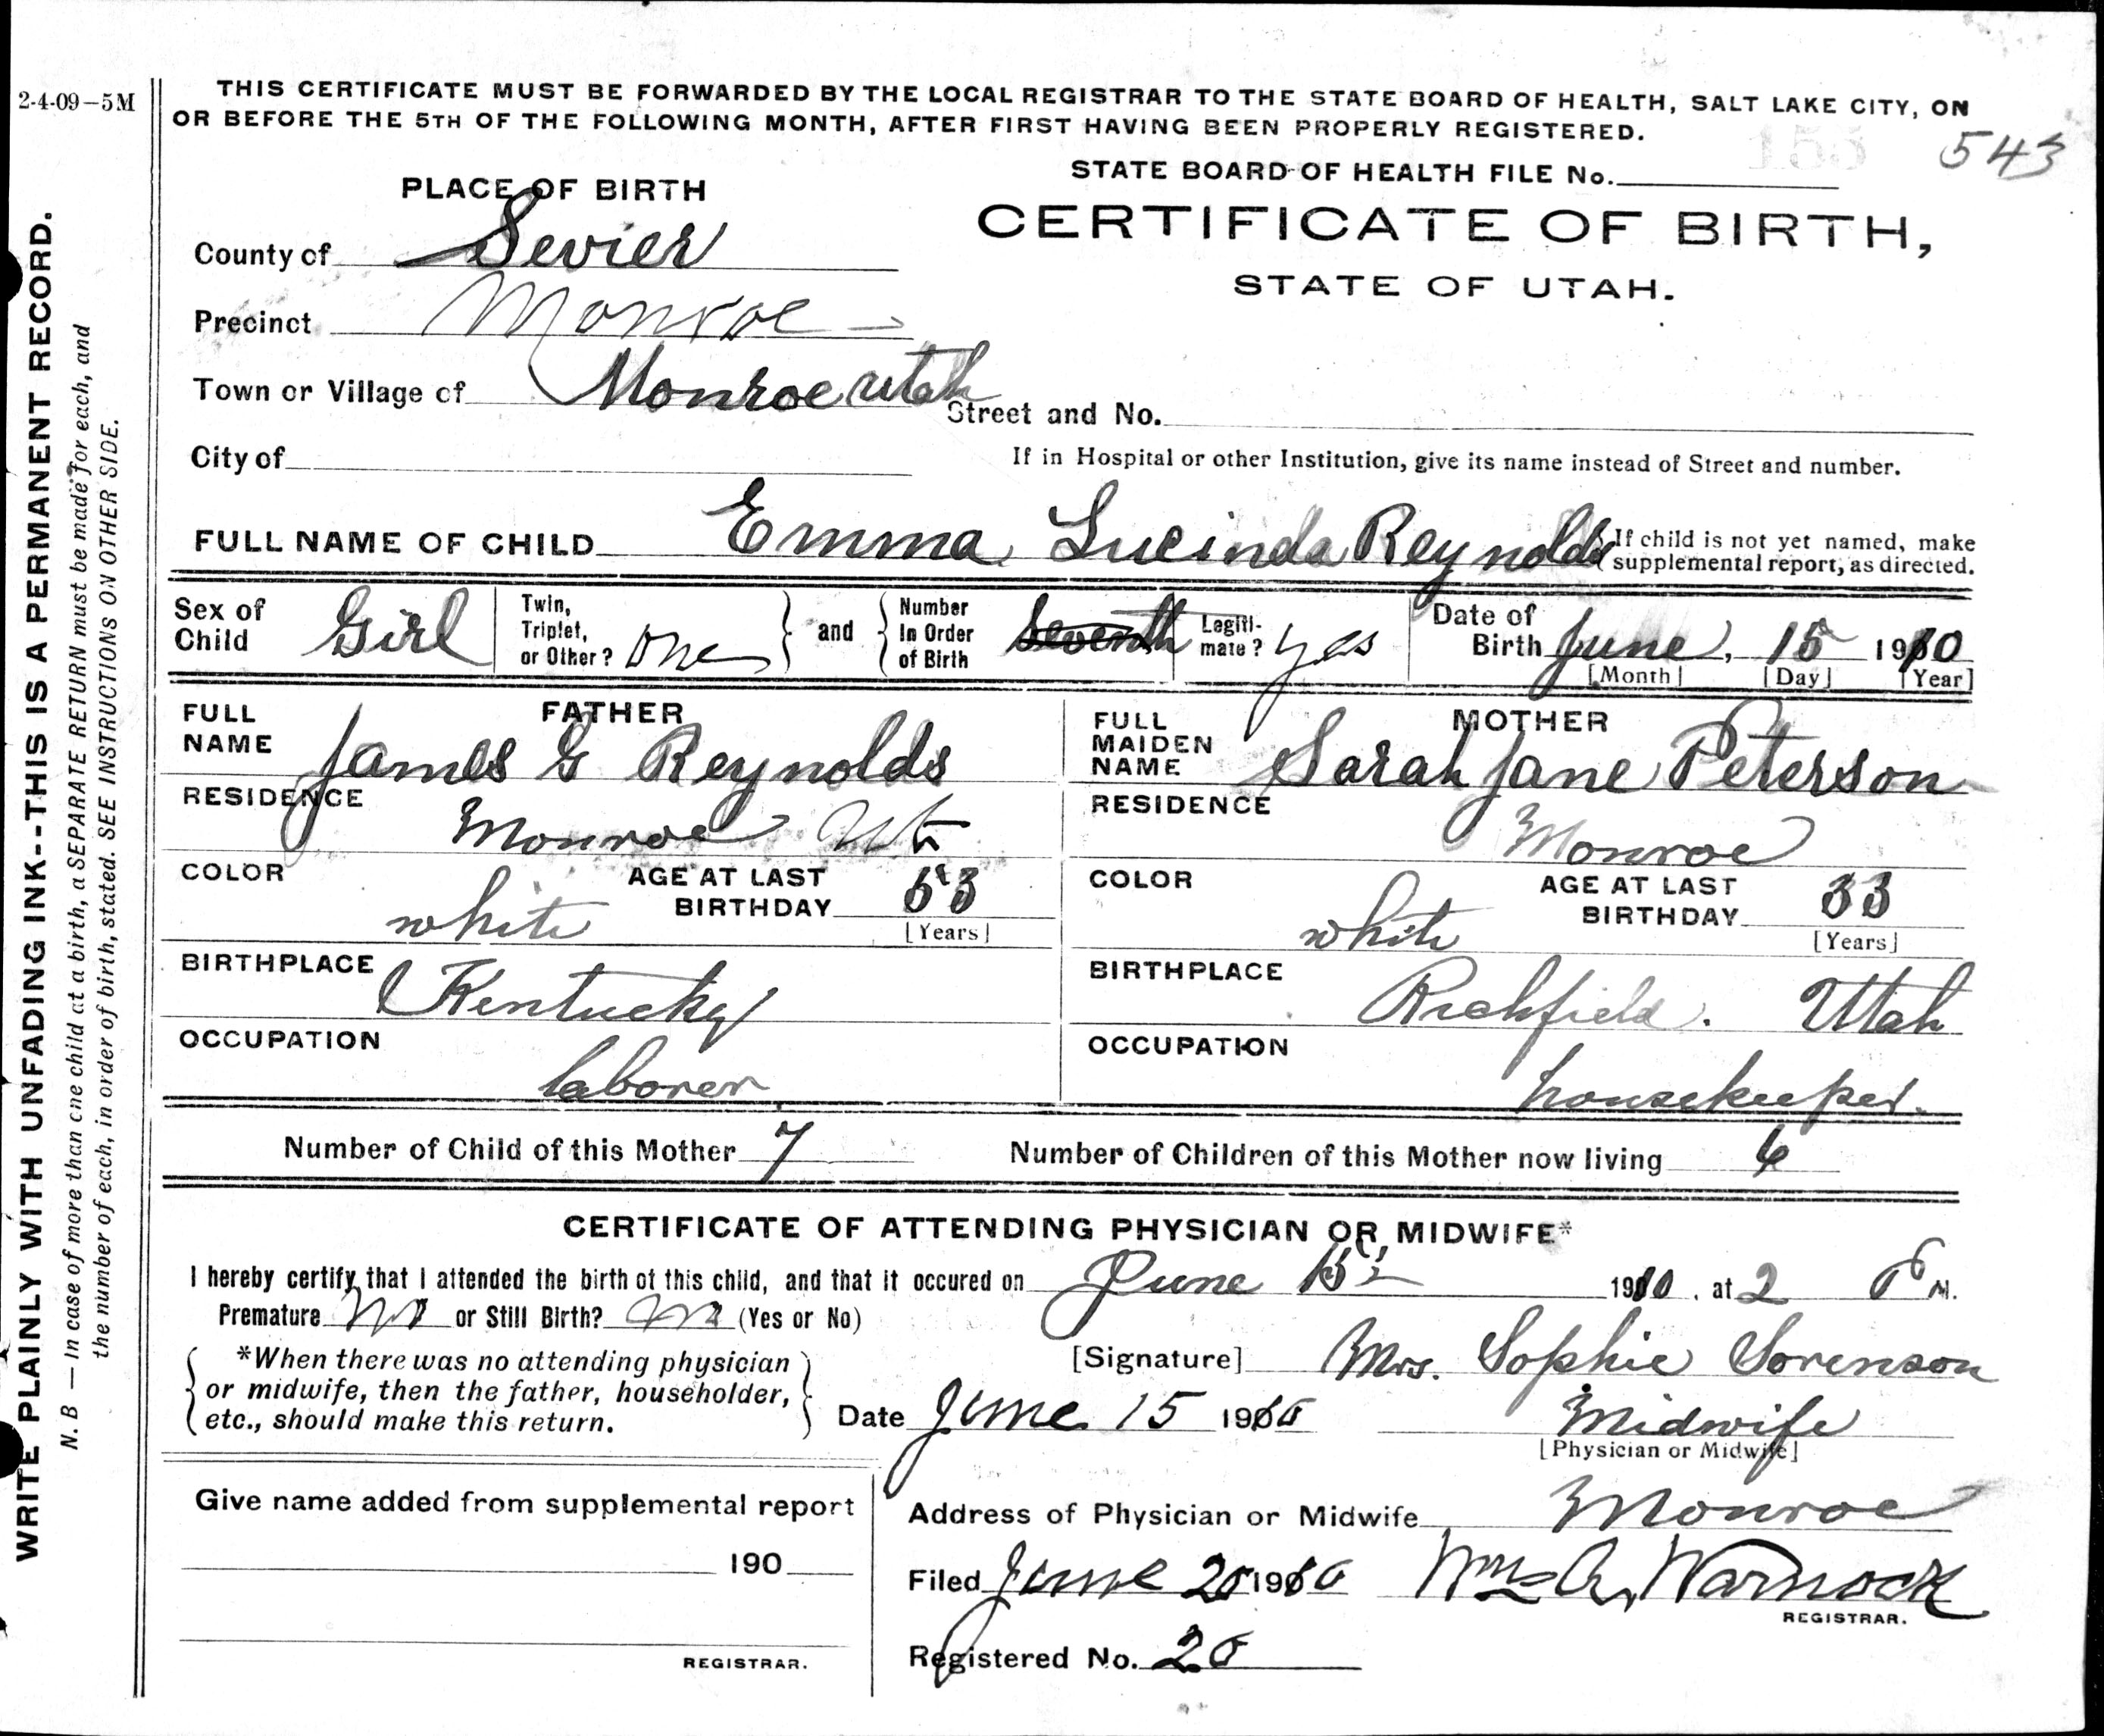 2-4-09-5M
THIS CERTIFICATE MUST BE FORWARDED BY THE LOCAL REGISTRAR TO THE STATE BOARD OF HEALTH, SALT LAKE CITY, ON
OR BEFORE THE 5TH OF THE FOLLOWING MONTH, AFTER FIRST HAVING BEEN PROPERLY REGISTERED.
543
STATE BOARD OF HEALTH FILE No.
CERTIFICATE OF BIRTH,
STATE OF UTAH.
PLACE OF BIRTH
County of Sevier
Precinct Monroe
Town or Village of Monroe Utah
Street and No.
City of
If in Hospital or other Institution, give its name instead of Street and number.
FULL NAME OF CHILD Emma Lucinda Reynolds
If child is not yet named, make
supplemental report, as directed.
Sex of Child Girl
Twin, Triplet, or Other? One and Number In Order of Birth Seventh
Legitimate? Yes
Date of Birth June, 15 1910
[Month] [Day] [Year]
FATHER
FULL NAME James G Reynolds
RESIDENCE Monroe Ut
COLOR white
AGE AT LAST BIRTHDAY 53
[Years]
BIRTHPLACE Kentucky
OCCUPATION laborer
MOTHER
FULL MAIDEN NAME Sarah Jane Peterson
RESIDENCE Monroe
COLOR white
AGE AT LAST BIRTHDAY 33
[Years]
BIRTHPLACE Richfield. Utah
OCCUPATION housekeeper.
Number of Child of this Mother 7
Number of Children of this Mother now living 6
CERTIFICATE OF ATTENDING PHYSICIAN OR MIDWIFE*
I hereby certify that I attended the birth of this child, and that it occured on June 15 1910, at 2 P M.
Premature No or Still Birth? No (Yes or No)
*When there was no attending physician
or midwife, then the father, householder,
etc., should make this return.
[Signature] Mrs. Sophie Sorenson
Date June 15 1910
Midwife
[Physician or Midwife]
Give name added from supplemental report
190
REGISTRAR.
Address of Physician or Midwife Monroe
Filed June 20 1910 Wm A. Warnock
REGISTRAR.
Registered No. 20
WRITE PLAINLY WITH UNFADING INK--THIS IS A PERMANENT RECORD.
N. B — In case of more than one child at a birth, a SEPARATE RETURN must be made for each, and
the number of each, in order of birth, stated. SEE INSTRUCTIONS ON OTHER SIDE.